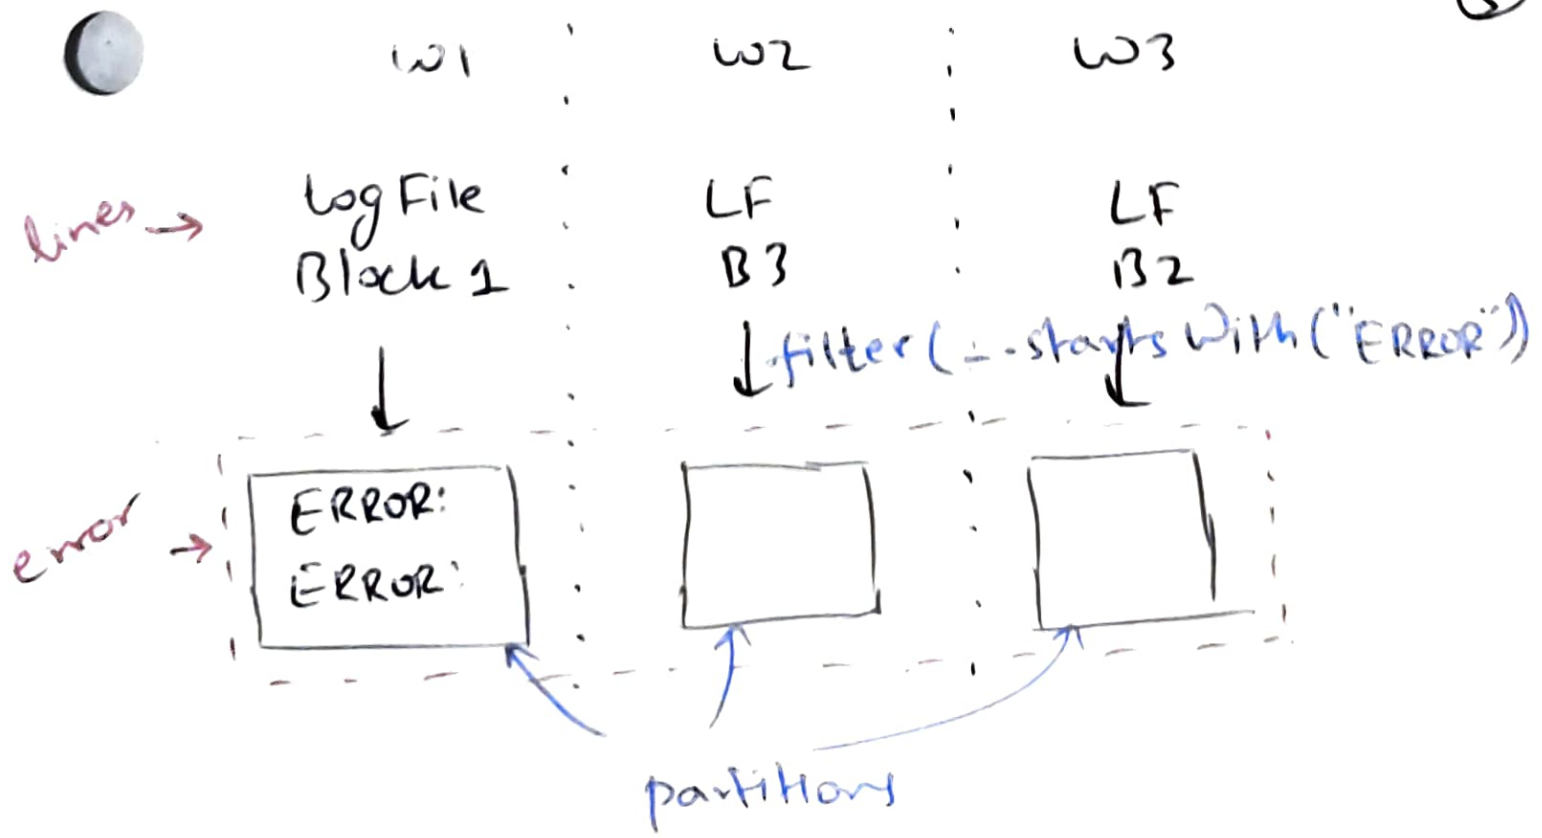 W1 W2 W3
lines → Log File LF LF
Block 1 B3 B2
.filter(_.startsWith("ERROR"))
error → ERROR:
ERROR:
partitions